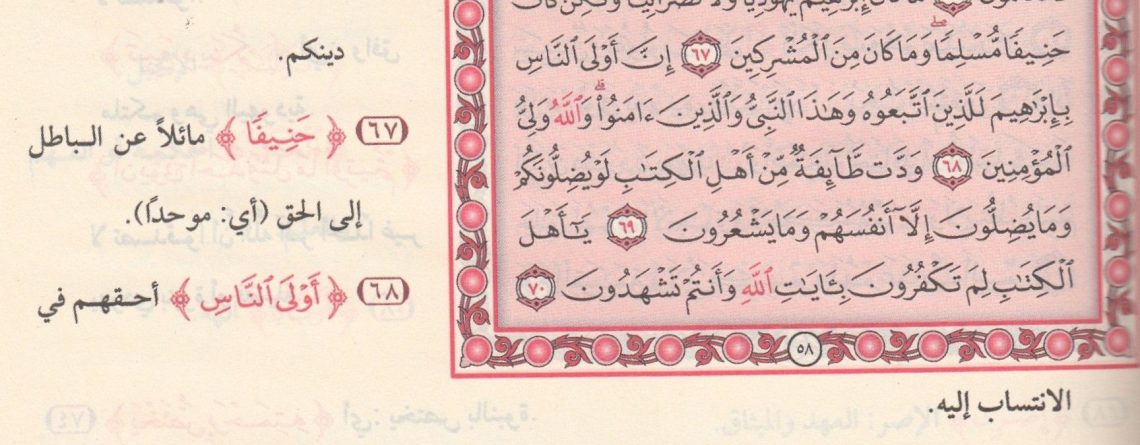 مَا كَانَ إِبْرَٰهِيمُ يَهُودِيًّا وَلَا نَصْرَانِيًّا وَلَٰكِن كَانَ
حَنِيفًا مُّسْلِمًا وَمَا كَانَ مِنَ الْمُشْرِكِينَ ۝٦٧ إِنَّ أَوْلَى النَّاسِ
بِإِبْرَٰهِيمَ لَلَّذِينَ اتَّبَعُوهُ وَهَٰذَا النَّبِيُّ وَالَّذِينَ ءَامَنُوا۟ ۗ وَاللَّهُ وَلِيُّ
الْمُؤْمِنِينَ ۝٦٨ وَدَّت طَّآئِفَةٌ مِّنْ أَهْلِ الْكِتَٰبِ لَوْ يُضِلُّونَكُمْ
وَمَا يُضِلُّونَ إِلَّآ أَنفُسَهُمْ وَمَا يَشْعُرُونَ ۝٦٩ يَٰٓأَهْلَ
الْكِتَٰبِ لِمَ تَكْفُرُونَ بِـَٔايَٰتِ اللَّهِ وَأَنتُمْ تَشْهَدُونَ ۝٧٠
٥٨
دينكم.
٦٧ ﴿ حَنِيفًا ﴾ مائلاً عن الباطل
إلى الحق (أي: موحداً).
٦٨ ﴿ أَوْلَى النَّاسِ ﴾ أحقهم في
الانتساب إليه.